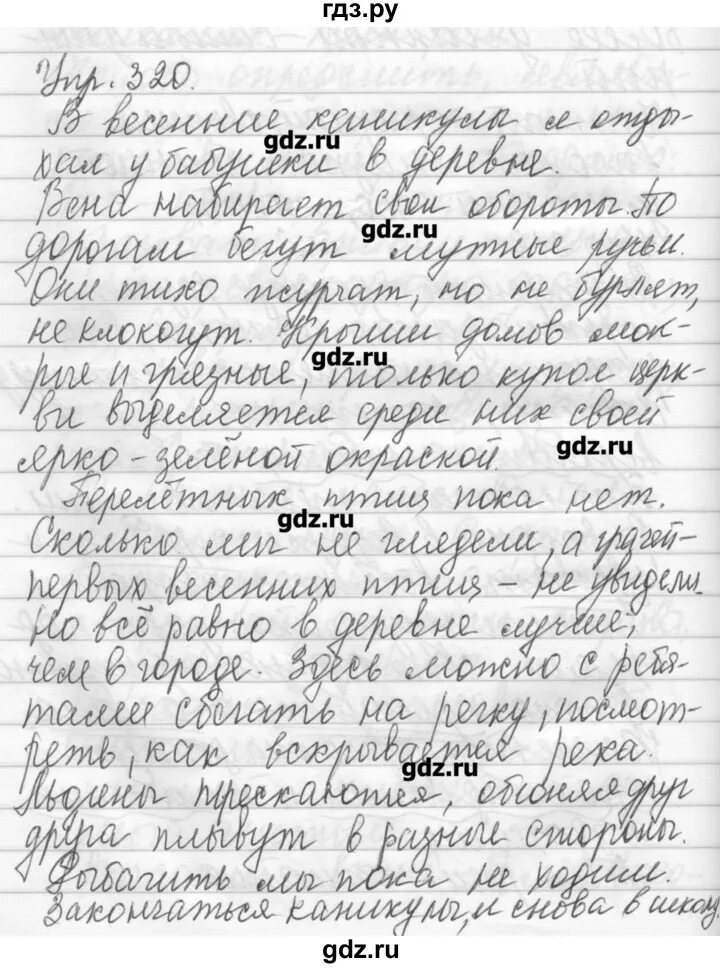 гдз.ру
Упр. 320.
В весенние каникулы я отды-
gdz.ru
хал у бабушки в деревне.
Весна набирает свои обороты. По
gdz.ru
дорогам бегут мутные ручьи.
Они тихо журчат, но не бурлят,
не клокочут. Крыши домов мок-
gdz.ru
рые и грязные, только купол церк-
ви выделяется среди них своей
gdz.ru
ярко-зелёной окраской.
Перелётных птиц пока нет.
gdz.ru
Сколько мы не глядели, а грачей -
первых весенних птиц - не увидели.
Но всё равно в деревне лучше,
чем в городе. Здесь можно с ребя-
тами сбегать на речку, посмот-
реть, как вскрывается река.
gdz.ru
Льдины трескаются, обгоняя друг
друга плывут в разные стороны.
Рыбачить мы пока не ходим.
Закончаться каникулы, и снова в школу.
gdz.ru